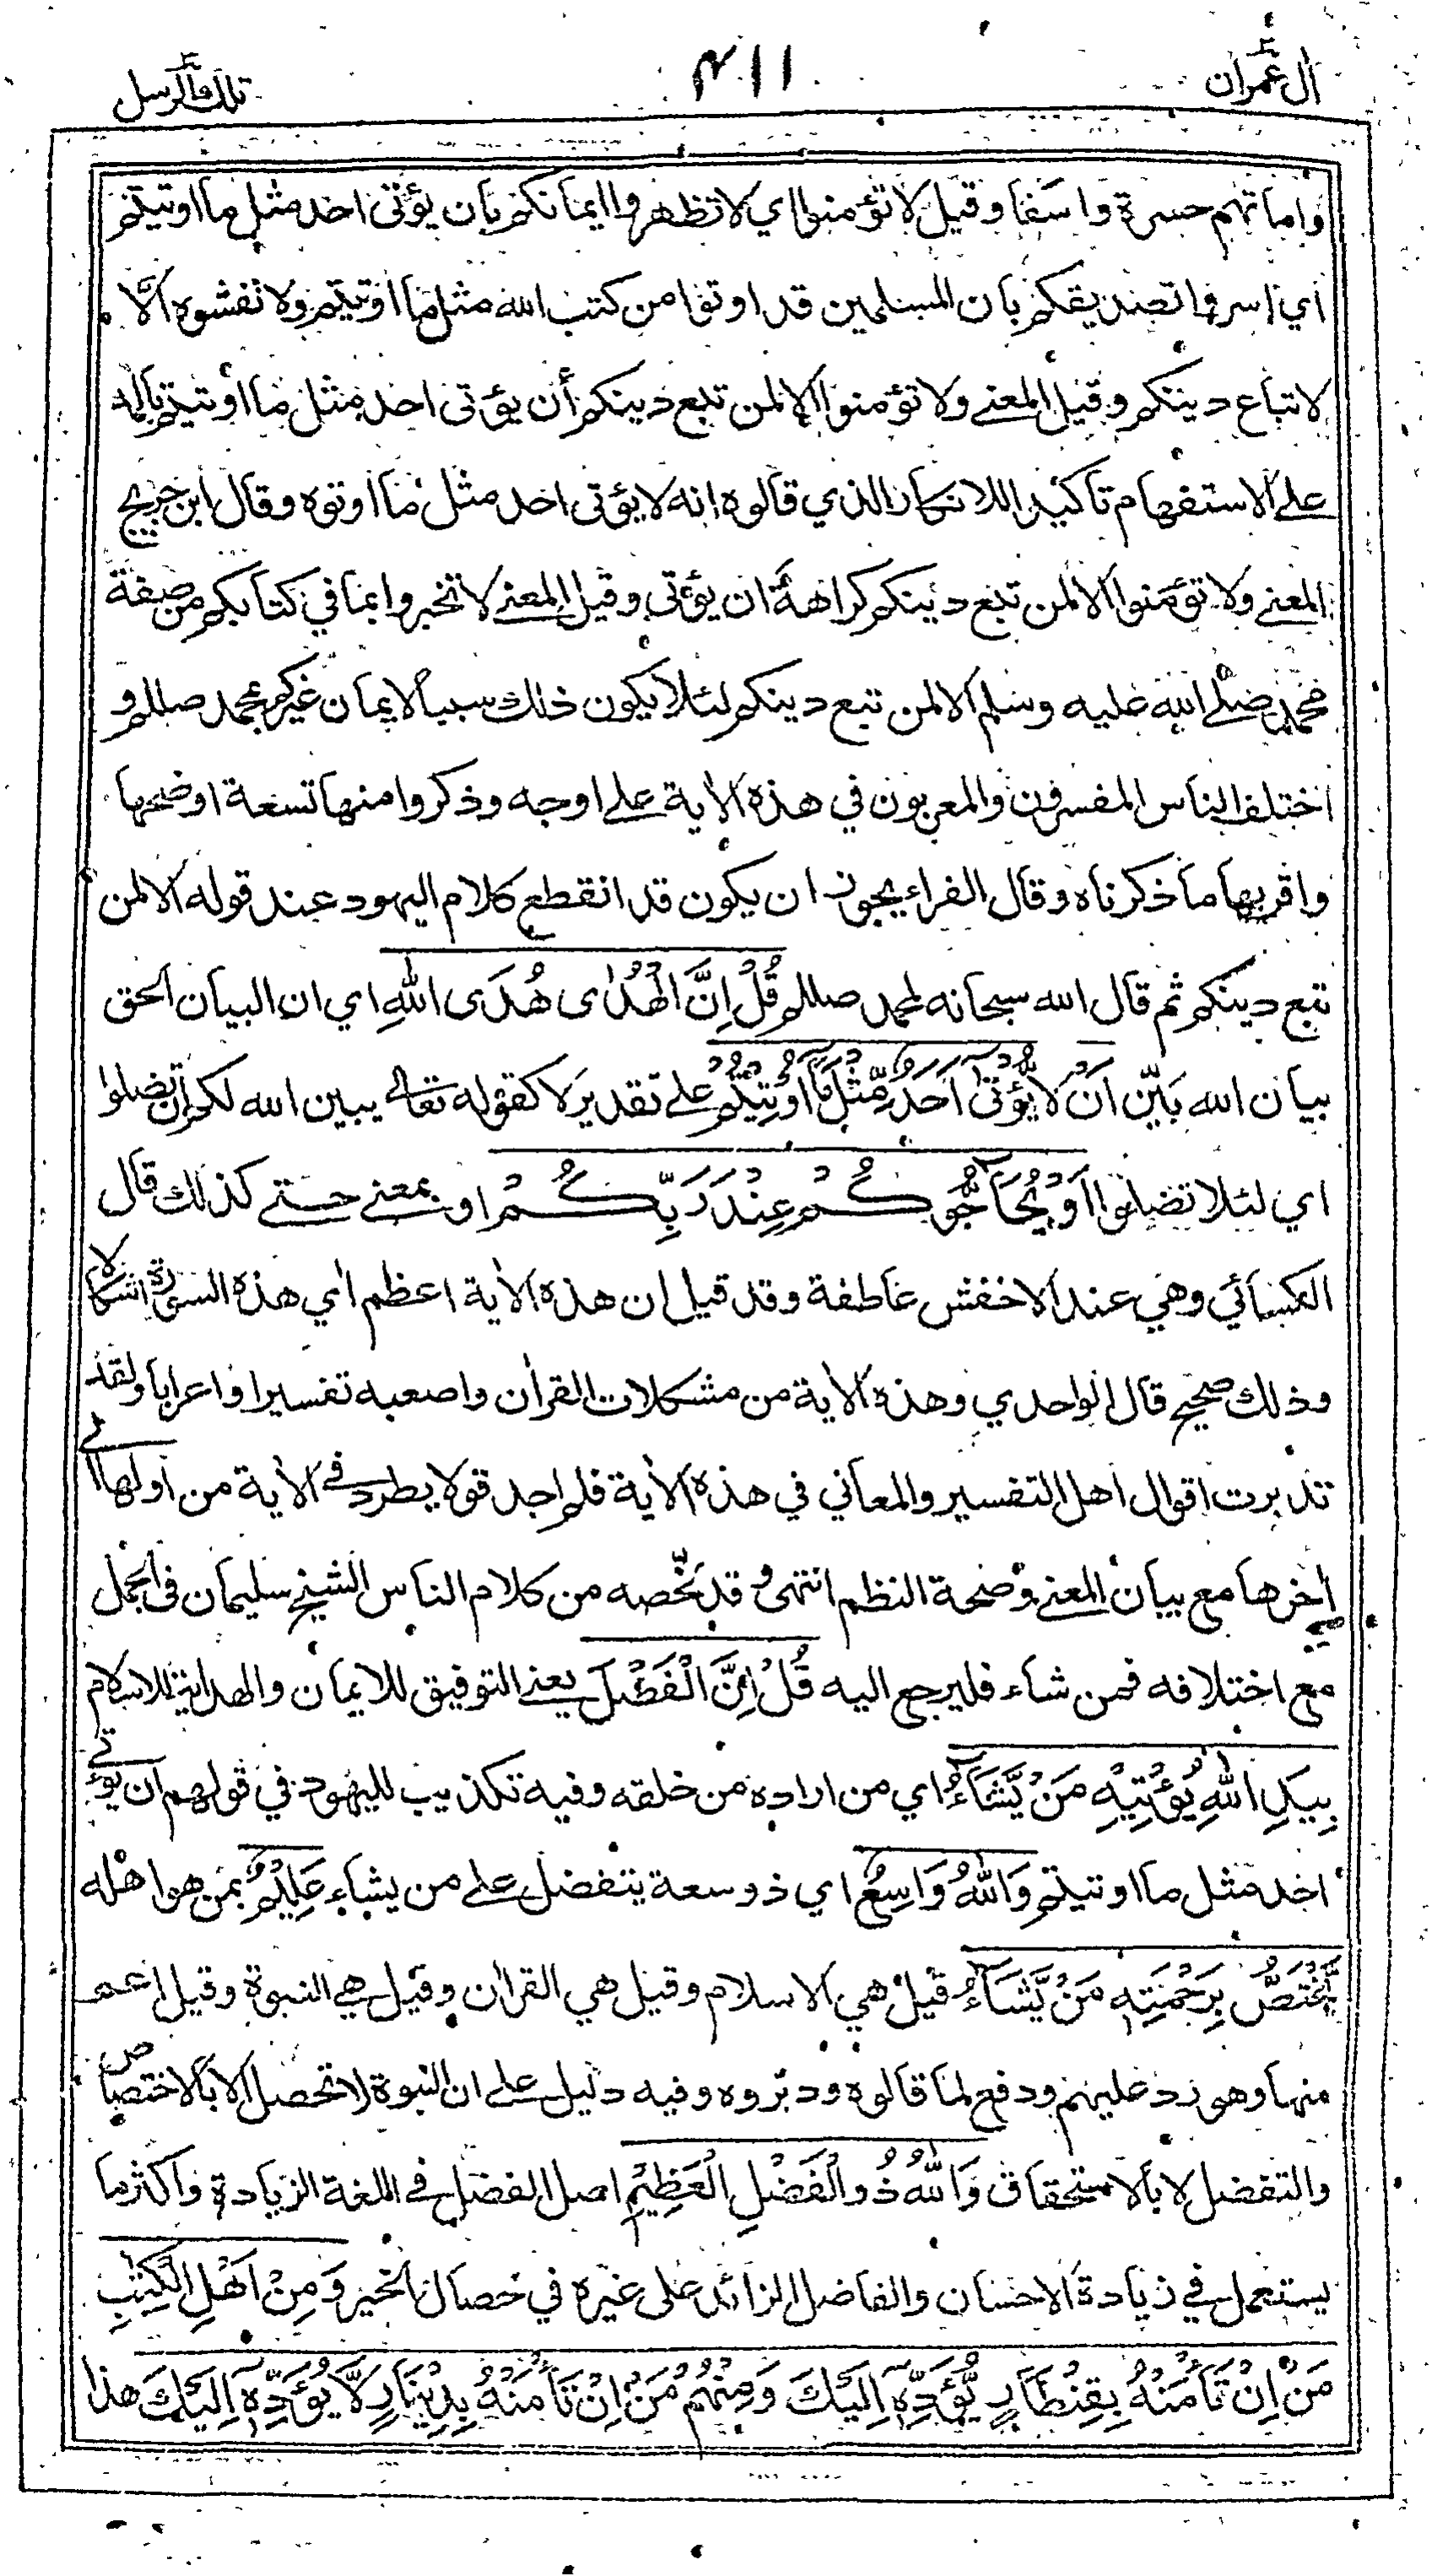 اٰل عمران ٤١١ تلك الرسل
واماتهم حسرة واسفا وقيل لا تؤمنوا اي لا تظهروا ايمانكم بان يؤتى احد مثل ما اوتيتم
اي اسروا تصديقكم بان المسلمين قد اوتوا من كتب الله مثل ما اوتيتم ولا تفشوه الا
لاتباع دينكم وقيل المعنى ولا تؤمنوا الا لمن تبع دينكم أن يؤتى احد مثل ما اوتيتم بالمد
على الاستفهام تاكيدا للانكار الذي قالوه انه لا يؤتى احد مثل ما اوتوه وقال ابن جريج
المعنى ولا تؤمنوا الا لمن تبع دينكم كراهة ان يؤتى وقيل المعنى لا تخبروا بما في كتابكم من صفة
محمد صلى الله عليه وسلم الا لمن تبع دينكم لئلا يكون ذلك سببا لايمان غيركم بمحمد صللم و
اختلف الناس المفسرون والمعربون في هذه الاٰية على اوجه وذكروا منها تسعة اوضحها
واقربها ما ذكرناه وقال الفراء يجوز ان يكون قد انقطع كلام اليهود عند قوله الا لمن
تبع دينكم ثم قال الله سبحانه لمحمد صللم قُلْ اِنَّ الْهُدٰى هُدَى اللّٰهِ اي ان البيان الحق
بيان الله بَيِّن اَنْ لَا يُّؤْتٰى اَحَدٌ مِّثْلَ مَآ اُوْتِيْتُمْ على تقدير لا كقوله تعالى يبين الله لكم ان تضلوا
اي لئلا تضلوا اَوْ يُحَآجُّوْكُمْ عِنْدَ رَبِّكُمْ او بمعنى حتى كذلك قال
الكسائي وهي عند الاخفش عاطفة وقد قيل ان هذه الاٰية اعظم اٰي هذه السورة اشكالا
وذلك صحيح قال الواحدي وهذه الاٰية من مشكلات القراٰن واصعبه تفسيرا واعرابا ولقد
تدبرت اقوال اهل التفسير والمعاني في هذه الاٰية فلم اجد قولا يطرد في الاٰية من اولها الى
اٰخرها مع بيان المعنى وصحة النظم انتهى وقد لخّصه من كلام الناس الشيخ سليمان في الجمل
مع اختلافه فمن شاء فليرجع اليه قُلْ اِنَّ الْفَضْلَ يعني التوفيق للايمان والهداية للاسلام
بِيَدِ اللّٰهِ يُؤْتِيْهِ مَنْ يَّشَآءُ اي من اراده من خلقه وفيه تكذيب لليهود في قولهم ان يؤتى
احد مثل ما اوتيتم وَاللّٰهُ وَاسِعٌ اي ذو سعة يتفضل على من يشاء عَلِيْمٌ بمن هو اهله
يَّخْتَصُّ بِرَحْمَتِهٖ مَنْ يَّشَآءُ قيل هي الاسلام وقيل هي القراٰن وقيل هي النبوة وقيل اعم
منها وهو رد عليهم ودفع لما قالوه ودبّروه وفيه دليل على ان النبوة لا تحصل الا بالاختصاص
والتفضل لا بالاستحقاق وَاللّٰهُ ذُو الْفَضْلِ الْعَظِيْمِ اصل الفضل في اللغة الزيادة واكثر ما
يستعمل في زيادة الاحسان والفاضل الزائد على غيره في خصال الخير وَمِنْ اَهْلِ الْكِتٰبِ
مَنْ اِنْ تَاْمَنْهُ بِقِنْطَارٍ يُّؤَدِّهٖٓ اِلَيْكَ وَمِنْهُمْ مَنْ اِنْ تَاْمَنْهُ بِدِيْنَارٍ لَّا يُؤَدِّهٖٓ اِلَيْكَ هذا